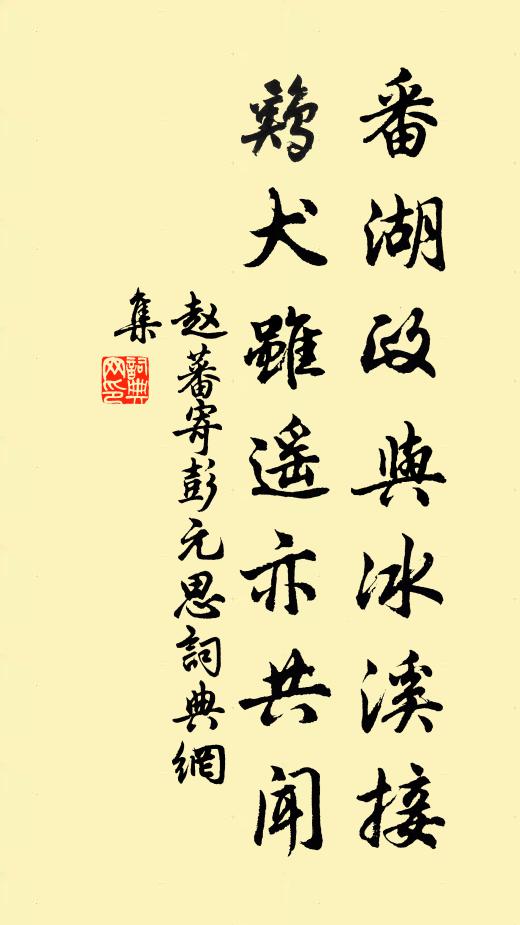 番湖政與冰溪接
鷄犬雖遥亦共聞
赵蕃寄彭元思詞典網
集
詞典網印